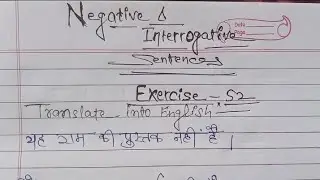 Negative &
Interrogative
Sentences
Exercise - 52
Translate into English:
यह राम की पुस्तक नहीं है ।